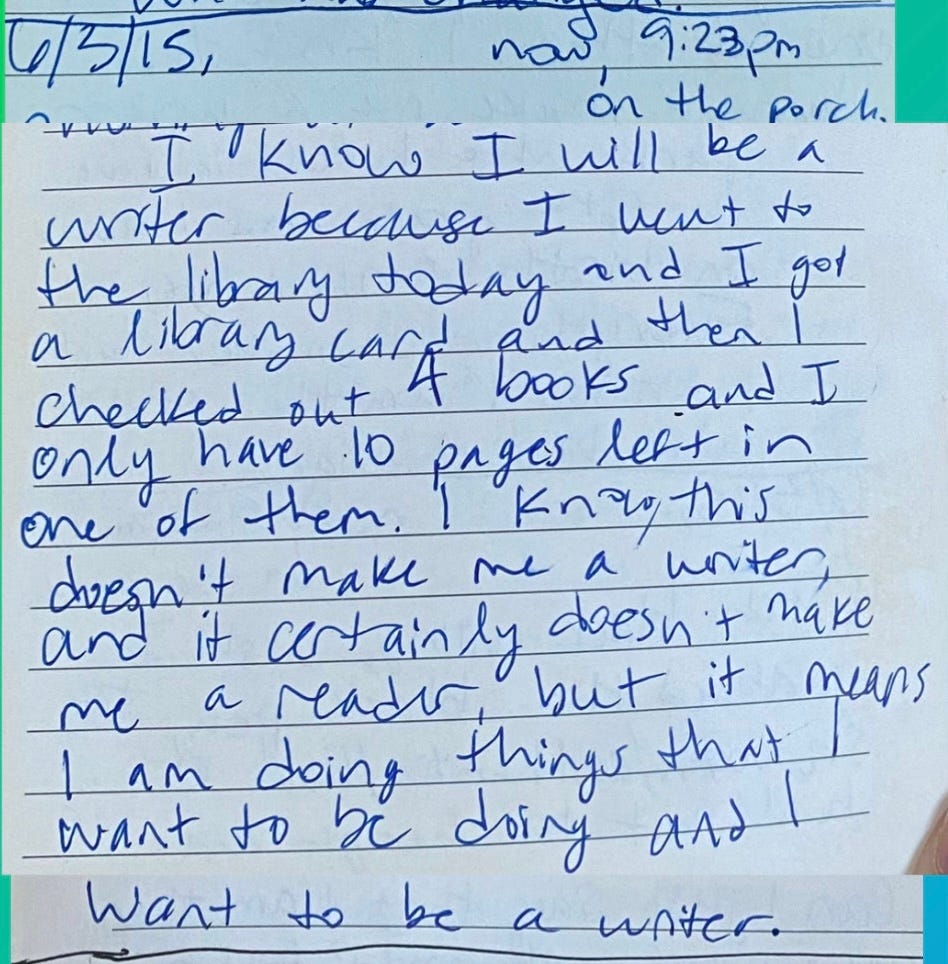 6/3/15, now, 9:23pm
on the porch.
I know I will be a
writer because I went to
the library today and I got
a library card and then I
checked out 4 books and I
only have 10 pages left in
one of them. I know this
doesn't make me a writer,
and it certainly doesn't make
me a reader, but it means
I am doing things that I
want to be doing and I
want to be a writer.